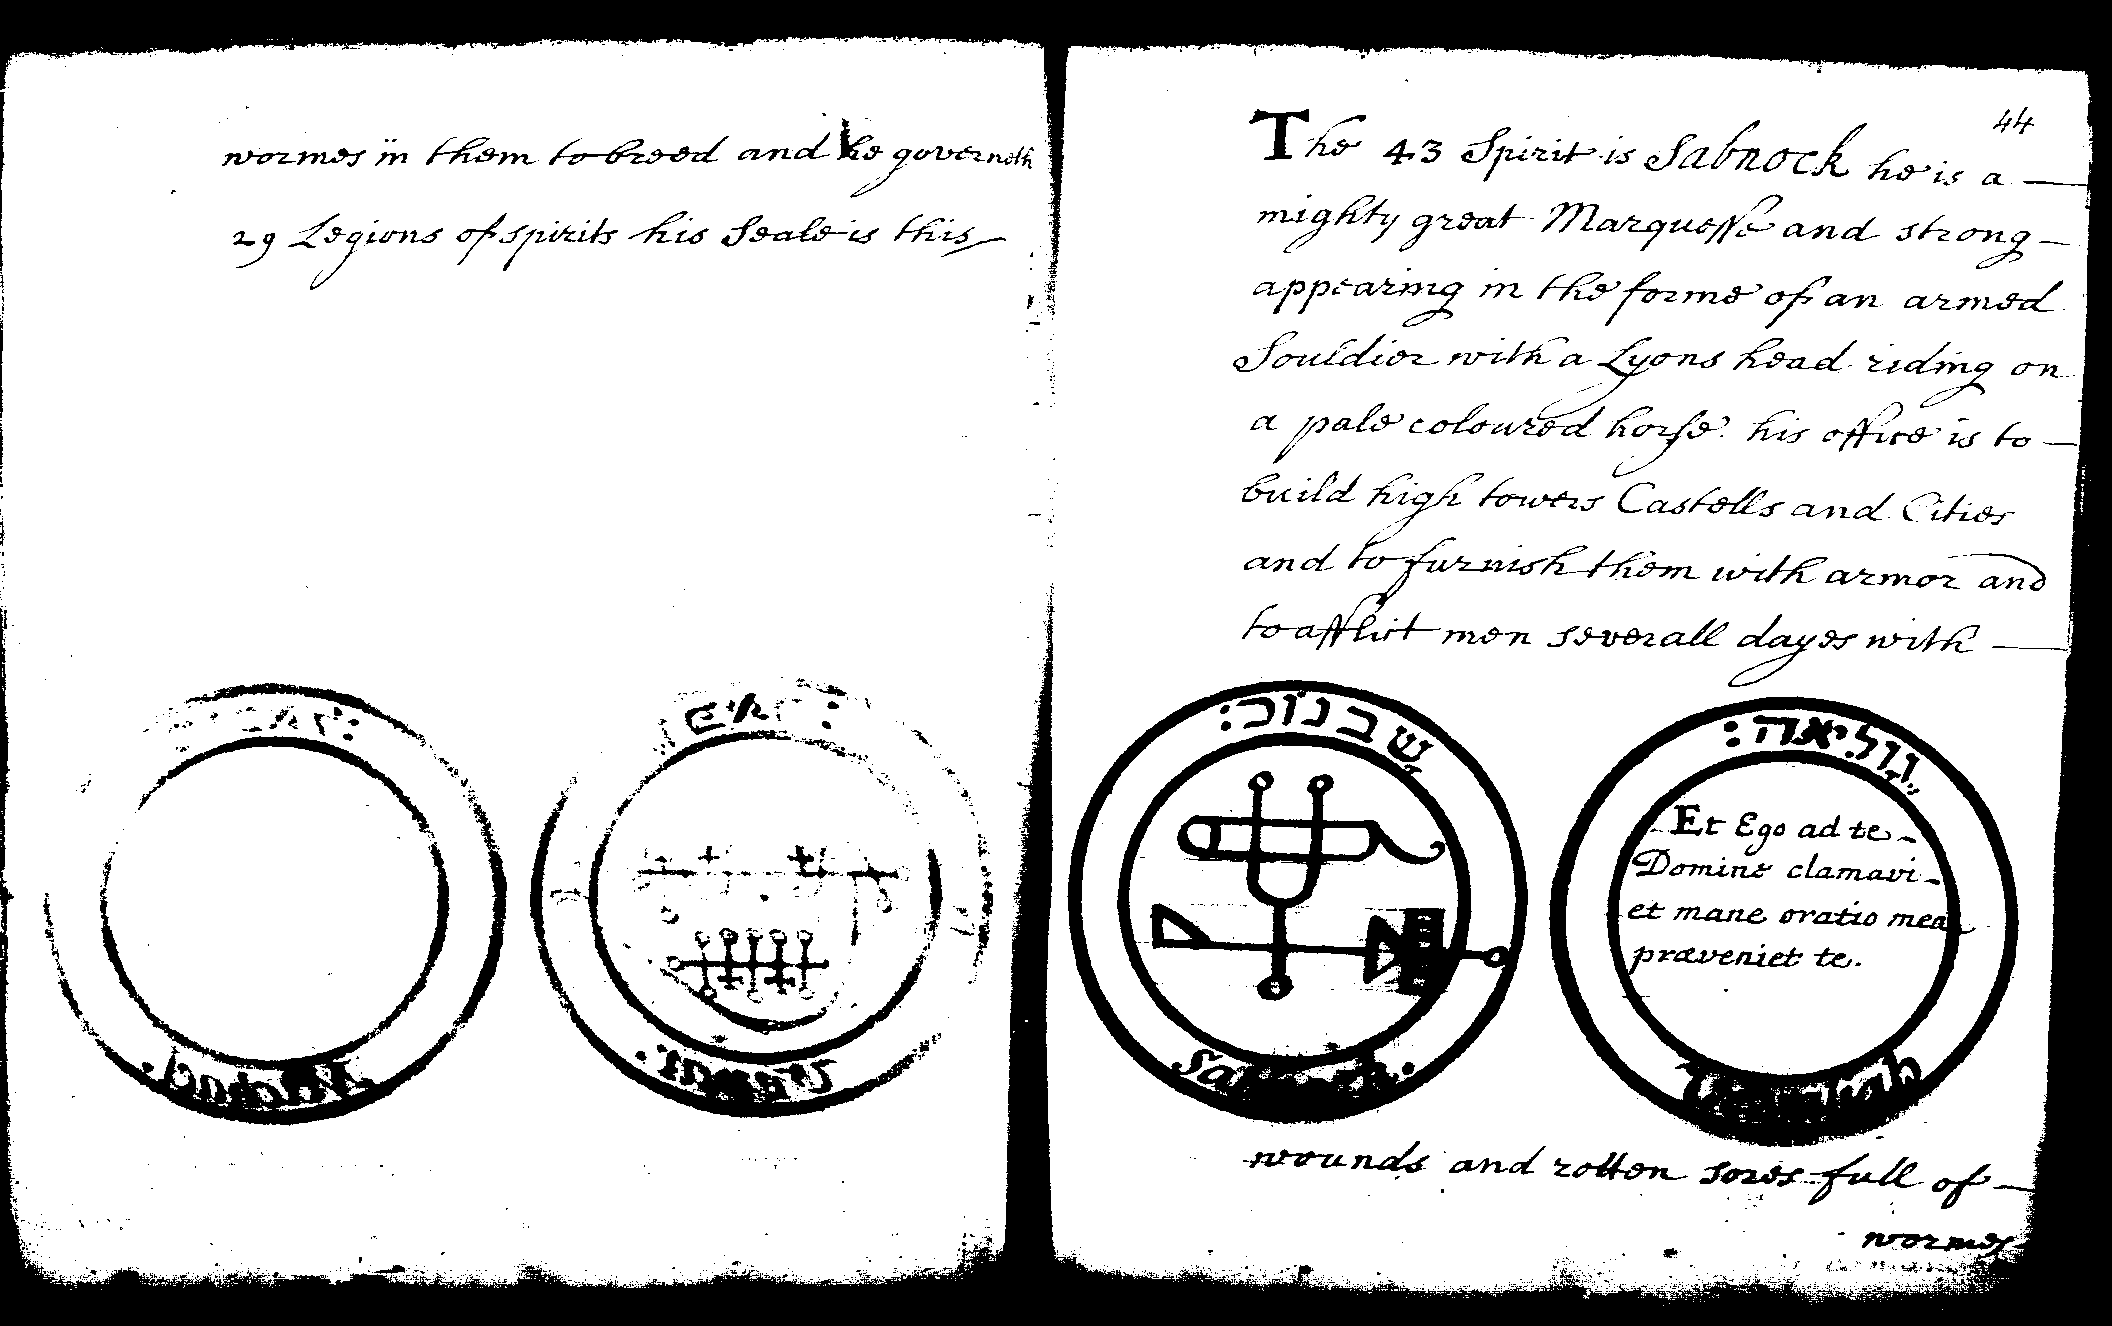 wormes in them to breed and he governeth
29 Legions of spirits his Seale is this
44
The 43 Spirit is Sabnock he is a
mighty great Marquesse and strong
appearing in the forme of an armed
Souldier with a Lyons head riding on
a pale coloured horse. his office is to
build high towers Castells and Cities
and to furnish them with armor and
to afflict men severall dayes with
שבנוכ:
וליאה:
Et Ego ad te
Domine clamavi
et mane oratio mea
præveniet te.
wounds and rotten sores full of
wormes